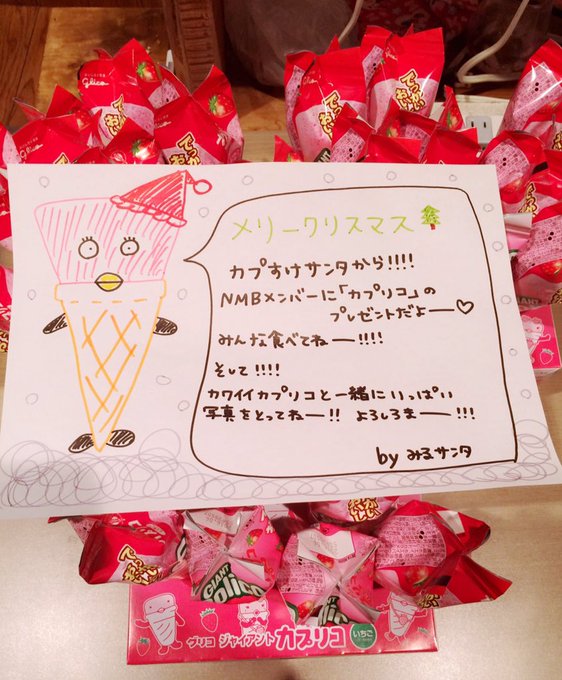 glico
メリークリスマス
カプすけサンタから!!!!
NMBメンバーに「カプリコ」の
プレゼントだよー♡
みんな食べてねー!!!!
そして!!!!
カワイイカプリコと一緒にいっぱい
写真をとってねー!! よろしろまー!!!
by みるサンタ
GIANT
グリコ ジャイアント カプリコ いちご